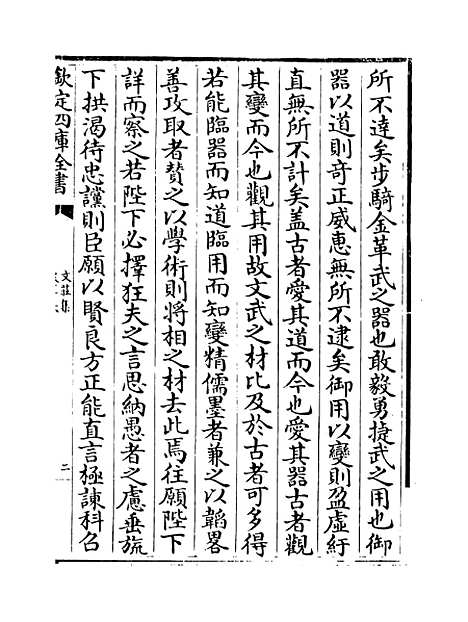 所不逹矣步騎金革武之器也敢毅勇捷武之用也御
器以道則奇正威惠無所不逮矣御用以變則盈虛紆
直無所不計矣盖古者愛其道而今也愛其器古者觀
其變而今也觀其用故文武之材比及於古者可多得
若能臨器而知道臨用而知變精儒墨者兼之以韜畧
善攻取者賛之以學術則將相之材去此焉往願陛下
詳而察之若陛下必擇狂夫之言思納愚者之慮垂旒
下拱渴待忠讜則臣願以賢良方正能直言極諫科召
欽定四庫全書
文莊集
二